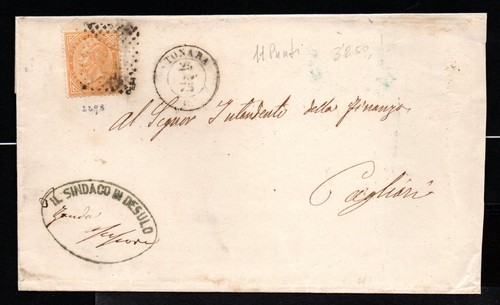 11 Punti 3250,
TONARA
25
73
2298
Al Signor Intendente della Finanza
Cagliari
IL SINDACO DI DESULO